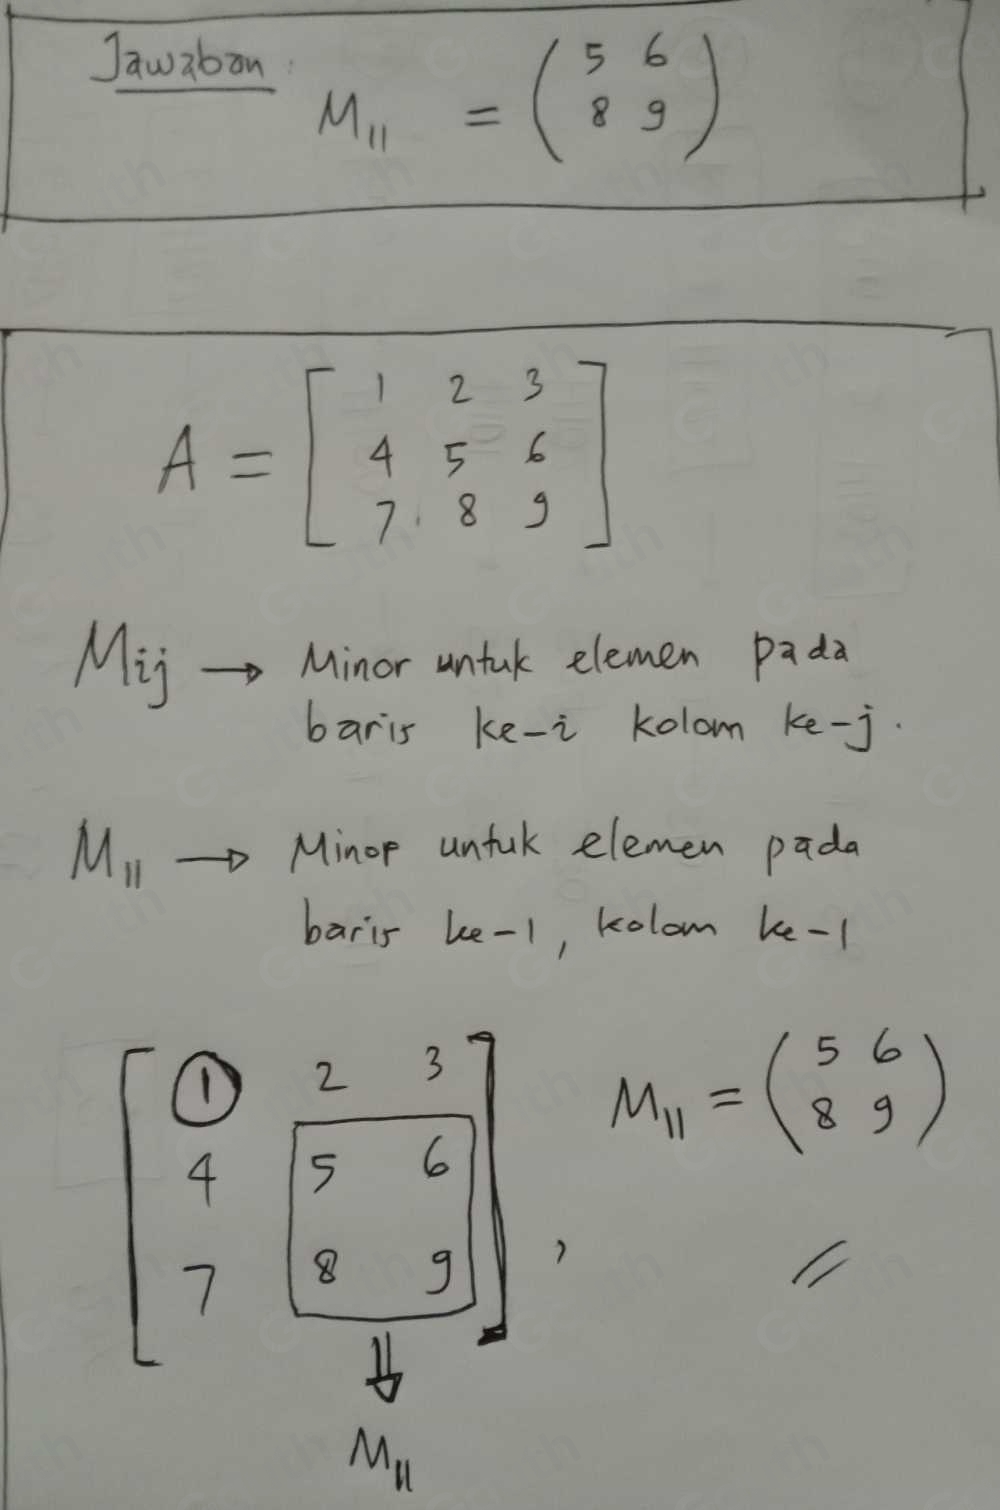 Jawaban :
M₁₁ = ( 5 6
8 9 )
A = [ 1 2 3
4 5 6
7 8 9 ]
Mij → Minor untuk elemen pada
baris ke-i kolom ke-j.
M₁₁ → Minor untuk elemen pada
baris ke-1, kolom ke-1
[ 1 2 3
4 5 6
7 8 9 ] ,
M₁₁ = ( 5 6
8 9 )
⇓
M₁₁